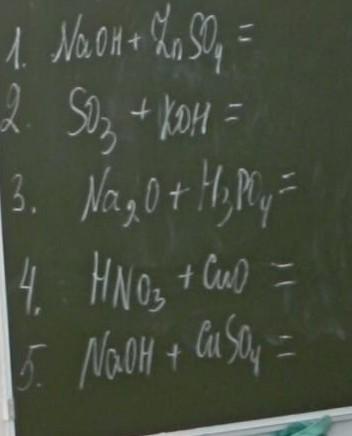 1. NaOH + ZnSO₄ =
2. SO₃ + KOH =
3. Na₂O + H₃PO₄ =
4. HNO₃ + CuO =
5. NaOH + CuSO₄ =